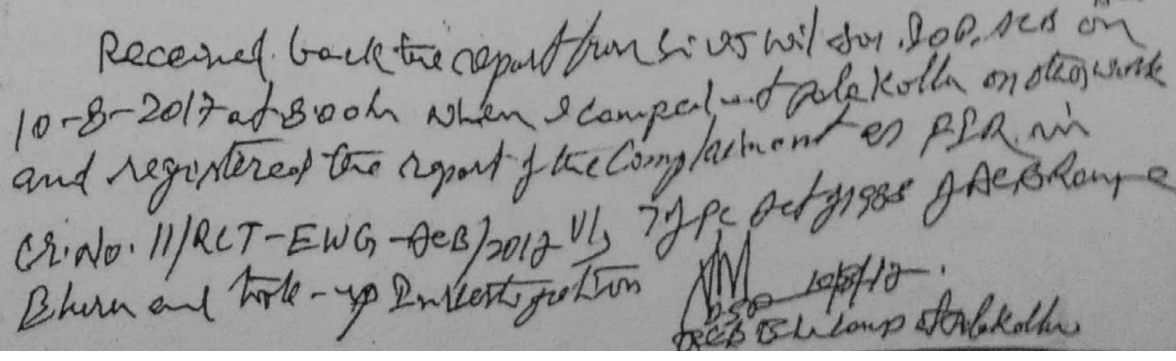 Received back the report from Sri VSS Wilson, DSP, ACB on
10-8-2017 at 8.00h when I camped at Palakollu on other work
and registered the report of the Complainant as FIR in
Cr.No. 11/RCT-EWG-ACB/2017 U/s 7 of PC Act of 1988 of ACB Range
Eluru and took-up Investigation
10/8/17.
DSP
ACB ELR Camp at Palakollu